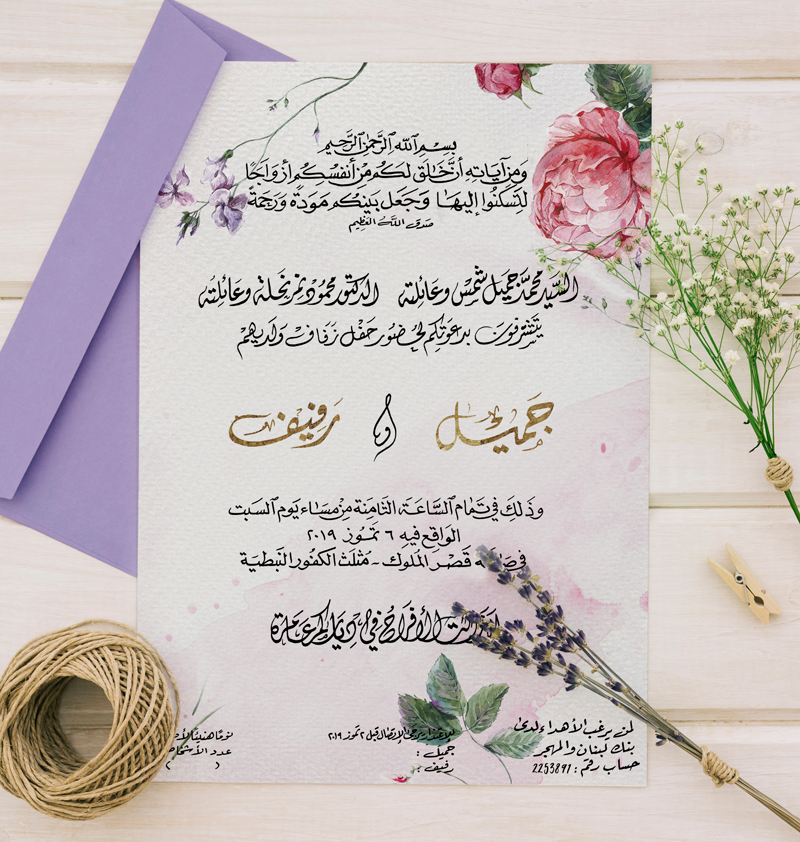 بسم الله الرحمن الرحيم
ومن آياته أن خلق لكم من أنفسكم أزواجًا
لتسكنوا إليها وجعل بينكم مودة ورحمة
صدق الله العظيم
السيد محمد جميل شمس وعائلته الدكتور محمود نمر نحلة وعائلته
يتشرفون بدعوتكم لحضور حفل زفاف ولديهم
جميل و رفيف
وذلك في تمام الساعة الثامنة من مساء يوم السبت
الواقع فيه ٦ تموز ٢٠١٩
في قصر الملوك - مثلث الكفور النبطية
الأفراح في دياركم عامرة
لمن يرغب الأهداء لدى
بنك لبنان والمهجر
حساب رقم : 2253897
يرجى الإتصال قبل ٢ تموز ٢٠١٩
جميل :
رفيف :
عدد الأشخاص
( )